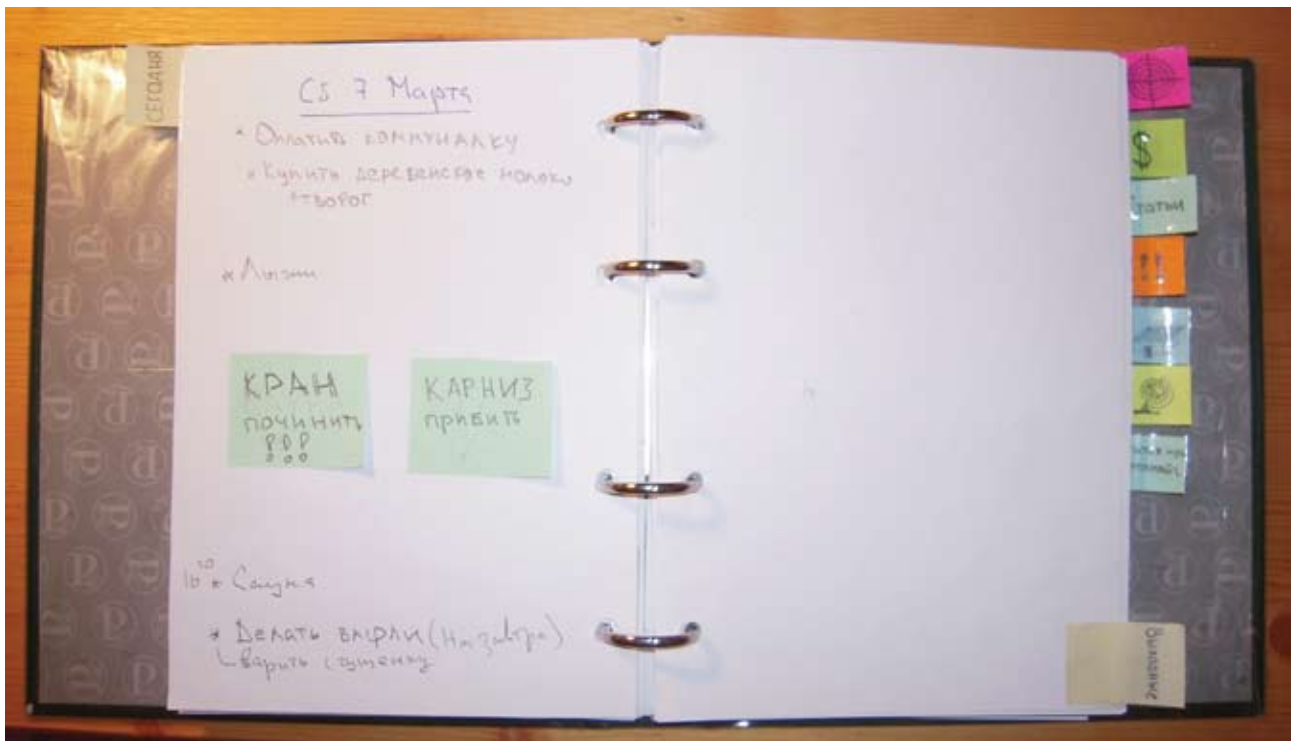 СЕГОДНЯ
Сб 7 Марта
* Оплатить коммуналку
* Купить деревенское молоко
творог
* Лыжи
КРАН
починить
!!!
КАРНИЗ
прибить
16⁰⁰ * Сауна
* Делать вафли (на завтра)
варить сгущенку
$
Статьи
!!